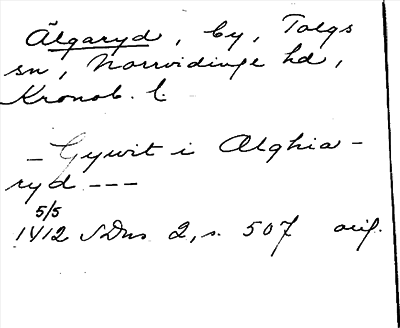 Älgaryd, by, Tolgs
sn, Norrvidinge hd,
Kronob. l.
– Gywit i Alghia-
ryd ---
5/5
1412 SDns 2, s. 507 orig.